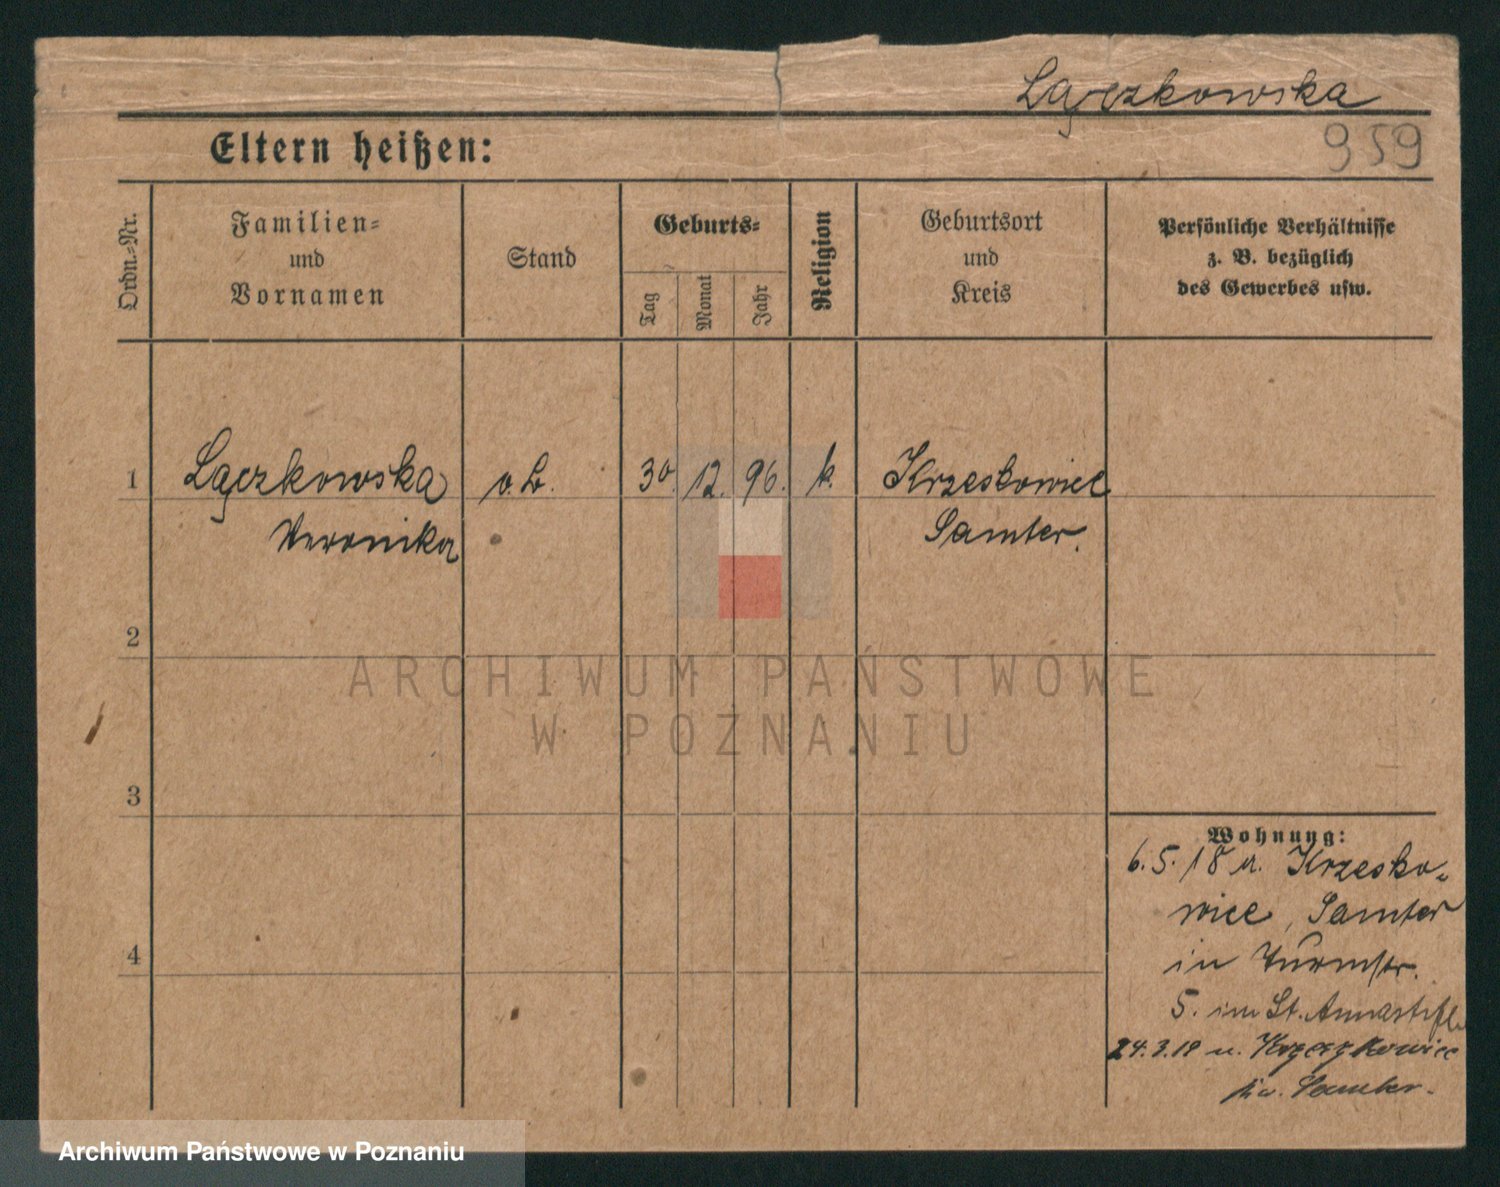 Lączkowska
Eltern heißen:
959
Ordn.-Nr.
Familien-
und
Vornamen
Stand
Geburts-
Tag
Monat
Jahr
Religion
Geburtsort
und
Kreis
Persönliche Verhältnisse
z. B. bezüglich
des Gewerbes usw.
1
Lączkowska
Veronika
o.B.
30.
12.
96.
k.
Krzeskowice
Samter.
2
3
4
Wohnung:
6.5.18 v. Krzesko-
wice, Samter
in Turmstr.
5. im St. Annastift
24.3.19 n. Krzeszkowice
Samter.
ARCHIWUM PAŃSTWOWE
W POZNANIU
Archiwum Państwowe w Poznaniu